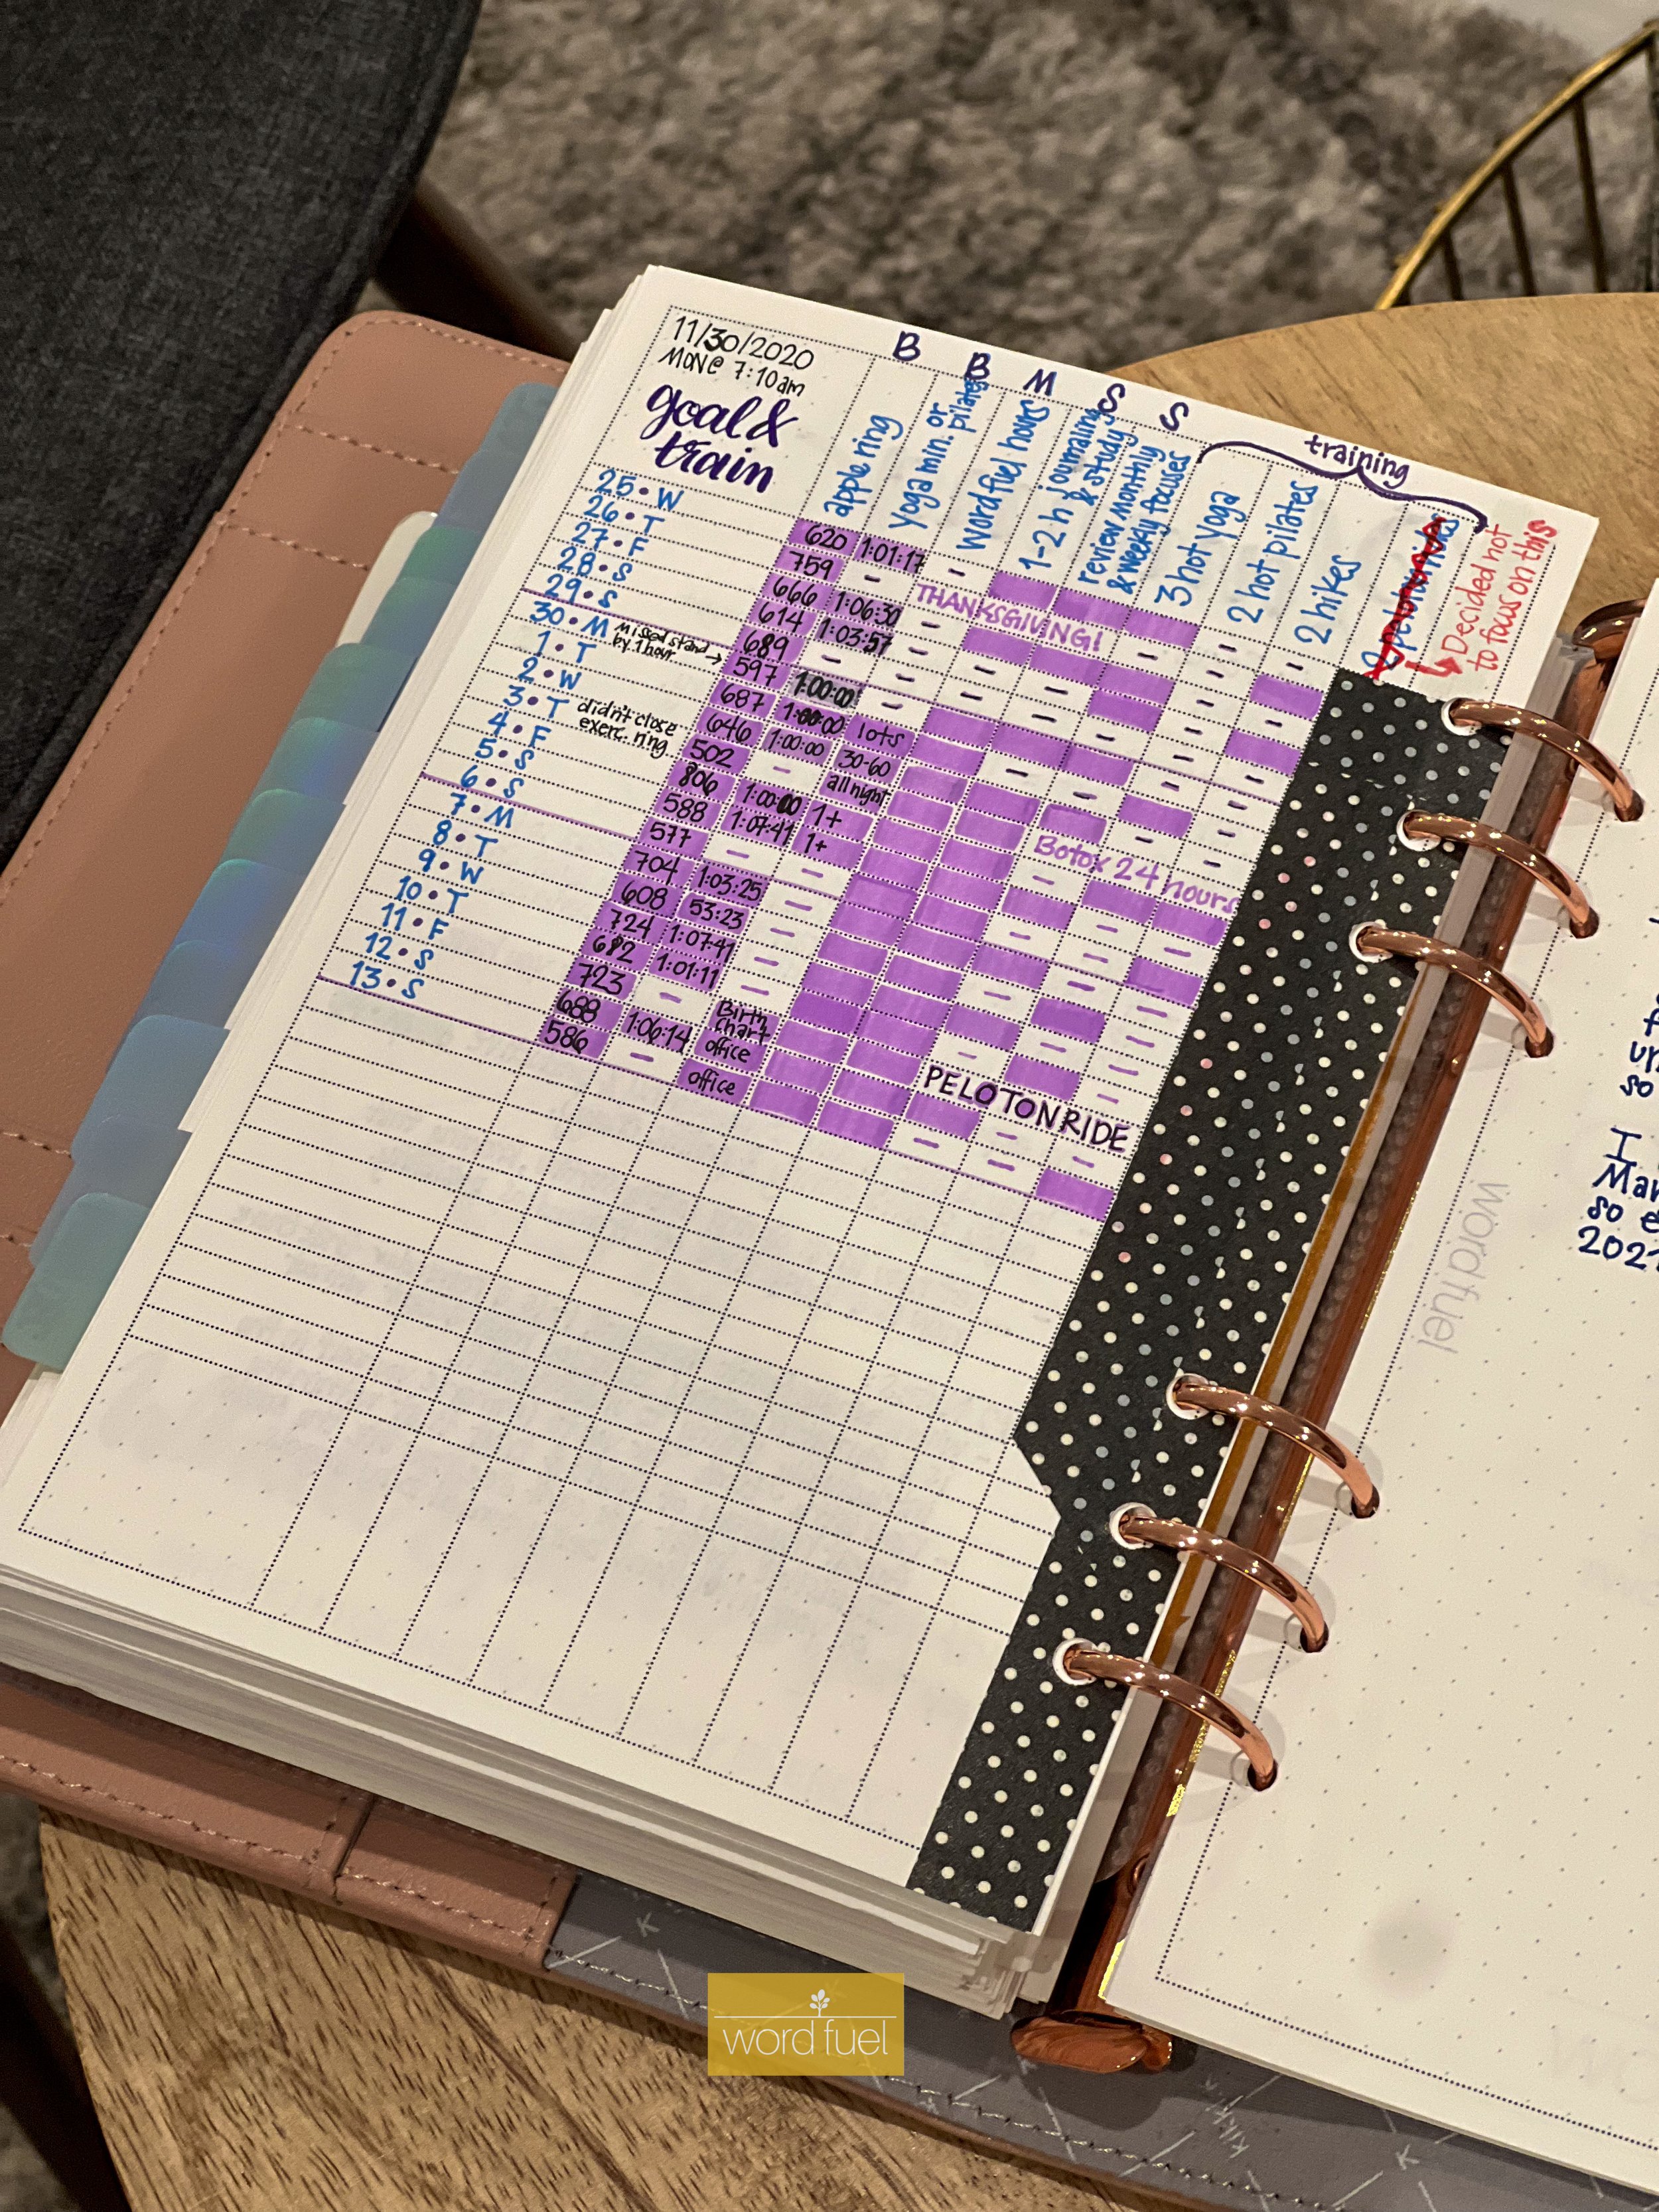 11/30/2020
MON @ 7:10am
goal &
train
B B M S S
training
apple ring
yoga min. or pilates
word fuel hours
1-2 h journaling & study
review monthly & weekly focuses
3 hot yoga
2 hot pilates
2 hikes
Decided not
to focus on this
25 • W 620 1:01:17 –
26 • T 759 – THANKSGIVING!
27 • F 666 1:06:30 –
28 • S 614 1:03:57 –
29 • S 689 – –
30 • M missed stand by 1 hour 597 1:00:00 –
1 • T 687 1:00:00 lots
2 • W 646 1:00:00 30-60
3 • T didn't close exerc. ring 502 – all night
4 • F 806 1:00:00 1+ Botox 24 hours
5 • S 588 1:07:41 1+
6 • S 577 – –
7 • M 704 1:03:25 –
8 • T 608 53:23 –
9 • W 724 1:07:41 –
10 • T 682 1:01:11 –
11 • F 723 – Birth Chart PELOTON RIDE
12 • S 688 1:06:14 office
13 • S 586 – office
word fuel
I
so
202
word fuel